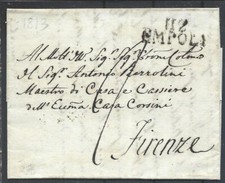 1813
112
EMPOLI
Al Molto Ill. Sig. Sig. Prone Colmo
Il Sig. Antonio Berrolini
Maestro di Casa e Cassiere
dell' Eccma Casa Corsini
Firenze